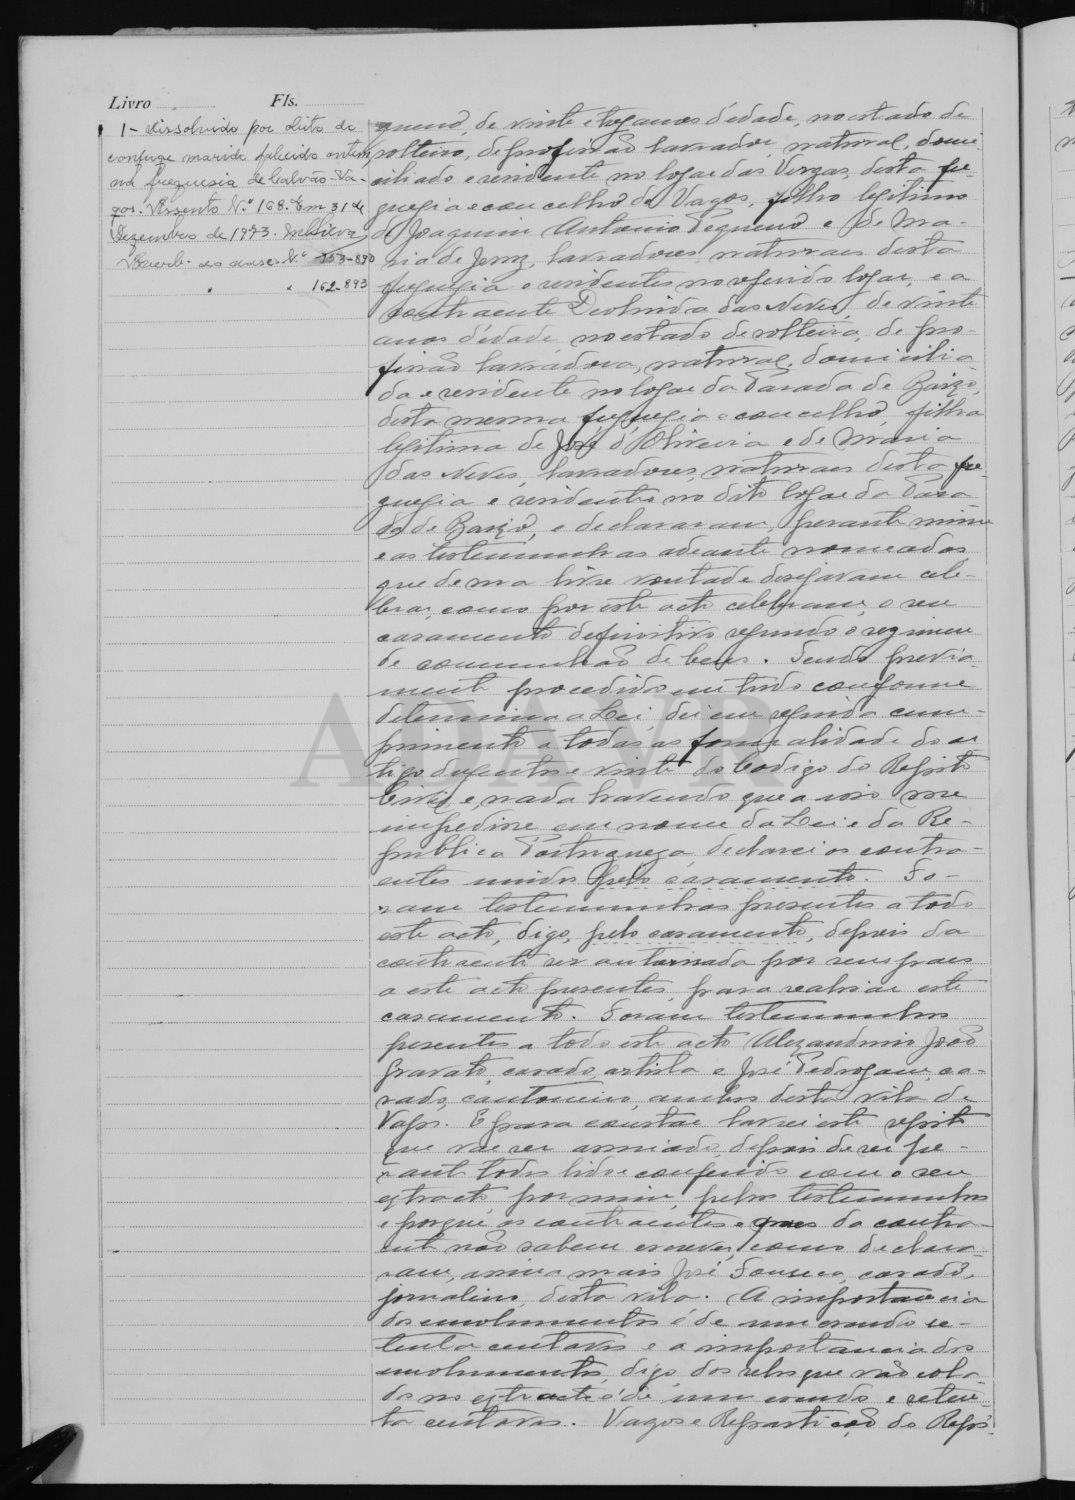 Livro Fls.
1 - Dissolvido por óbito do
conjuge marido falecido ontem
na freguesia de Calvão - Va-
gos. Assento N.º 168. Em 31 de
Dezembro de 1973.
Averb. aos asses. N.º 153-890
" " 162-893
queno, de vinte e tres anos d'edade, no estado de
solteiro, de profissão lavrador, natural, domi-
ciliado e residente no logar das Vergas, desta fre-
guesia e concelho de Vagos, filho legitimo
de Joaquim Antonio Pequeno e de Ma-
ria de Jesus, lavradores, naturaes desta
freguesia e residentes no referido logar, e a
contraente Deolinda das Neves, de vinte
anos d'edade no estado de solteira, de pro-
fissão lavradora, natural, domicilia-
da e residente no logar da Parada de Baixo,
desta mesma freguesia e concelho, filha
legitima de José d'Oliveira e de Maria
das Neves, lavradores, naturaes desta fre-
guesia e residentes no dito logar da Para-
da de Baixo, e declararam, perante mim
e as testemunhas adeante nomeadas
que de sua livre vontade desejavam cele-
brar, como por este acto celebram, o seu
casamento definitivo segundo o regimen
de communhão de bens. Sendo previa-
mente procedido em tudo conforme
determina a Lei dei em seguida cum-
primento a todas as formalidade do ar
tigo duzentos e vinte do Codigo do Registo
Civil e nada havendo que a isso me
impedisse em nome da Lei e da Re-
publica Portugueza, declarei os contra-
entes unidos pelo casamento. Fo-
ram testemunhas presentes a todo
este acto, digo, pelo casamento, depois da
contraente ser autorisada por seus paes
a este acto presentes, para realisar este
casamento. Foram testemunhas
presentes a todo este acto Alexandrino João
Gravato, casado, artista e José Pedrogam, ca-
sado, cantoneiro, ambos desta vila de
Vagos. E para constar lavrei este registo
que vae ser assinado, depois de ser pe-
rante todos lido e conferido com o seu
extracto, por mim, pelas testemunhas
e porque os contraentes e paes da contra-
ente não sabem escrever, como declara-
ram, assina mais José Fonseca, casado,
jornaleiro, desta vila. A importancia
dos emolumentos é de um escudo se-
tenta centavos e a importancia dos
emolumentos, digo, dos selos que vão cola-
dos no extracto é de um escudo e seten-
ta centavos. Vagos e Repartição do Regis-
ADAVR